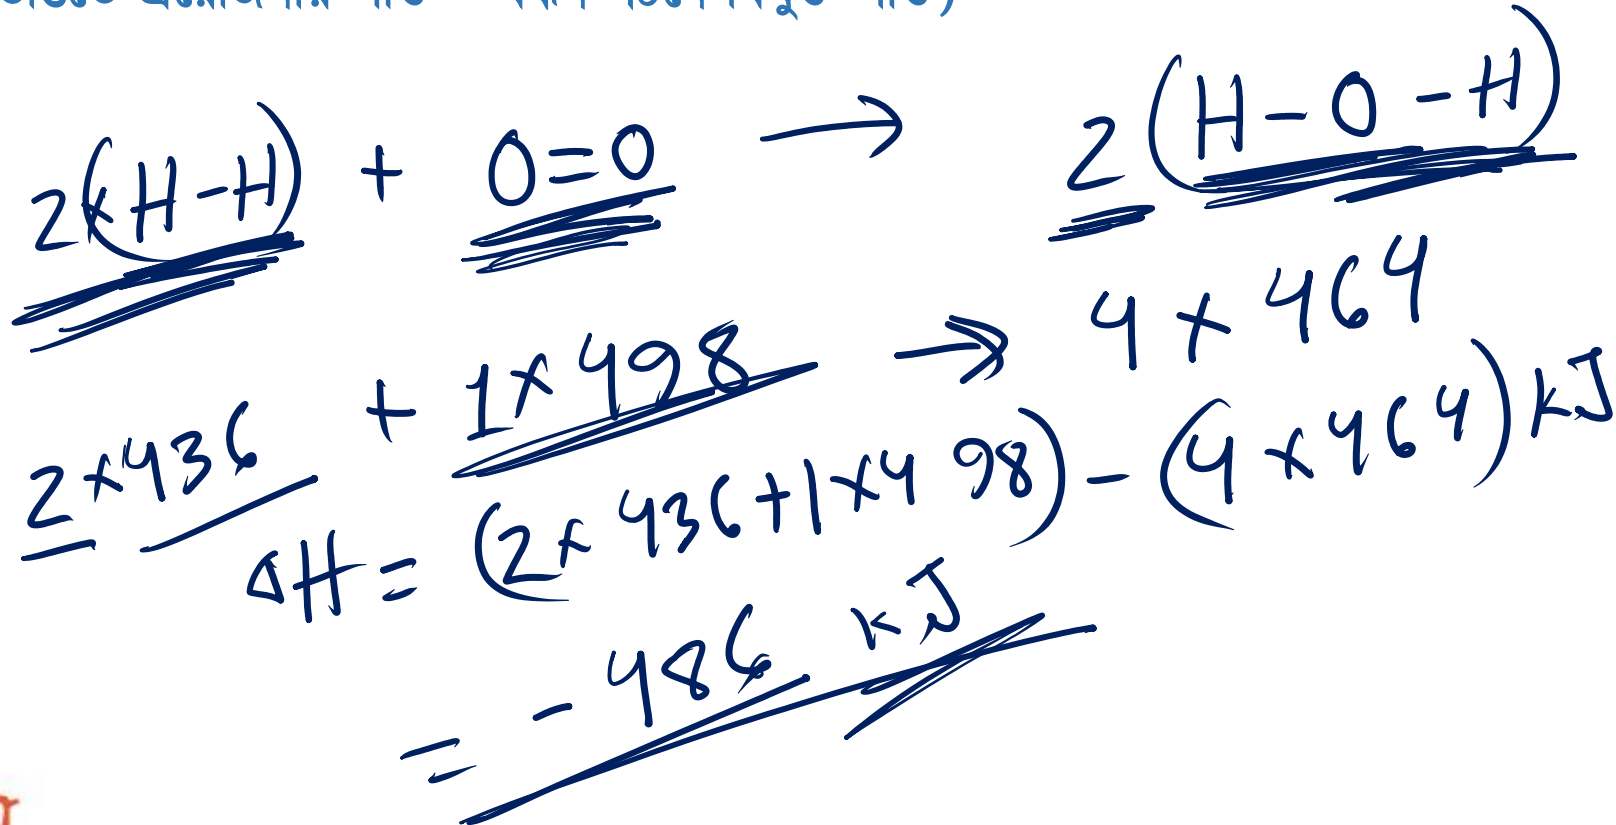 2×(H-H) + O=O → 2(H-O-H)
2×436 + 1×498 → 4×464
ΔH = (2×436+1×498) - (4×464) kJ
= -486 kJ